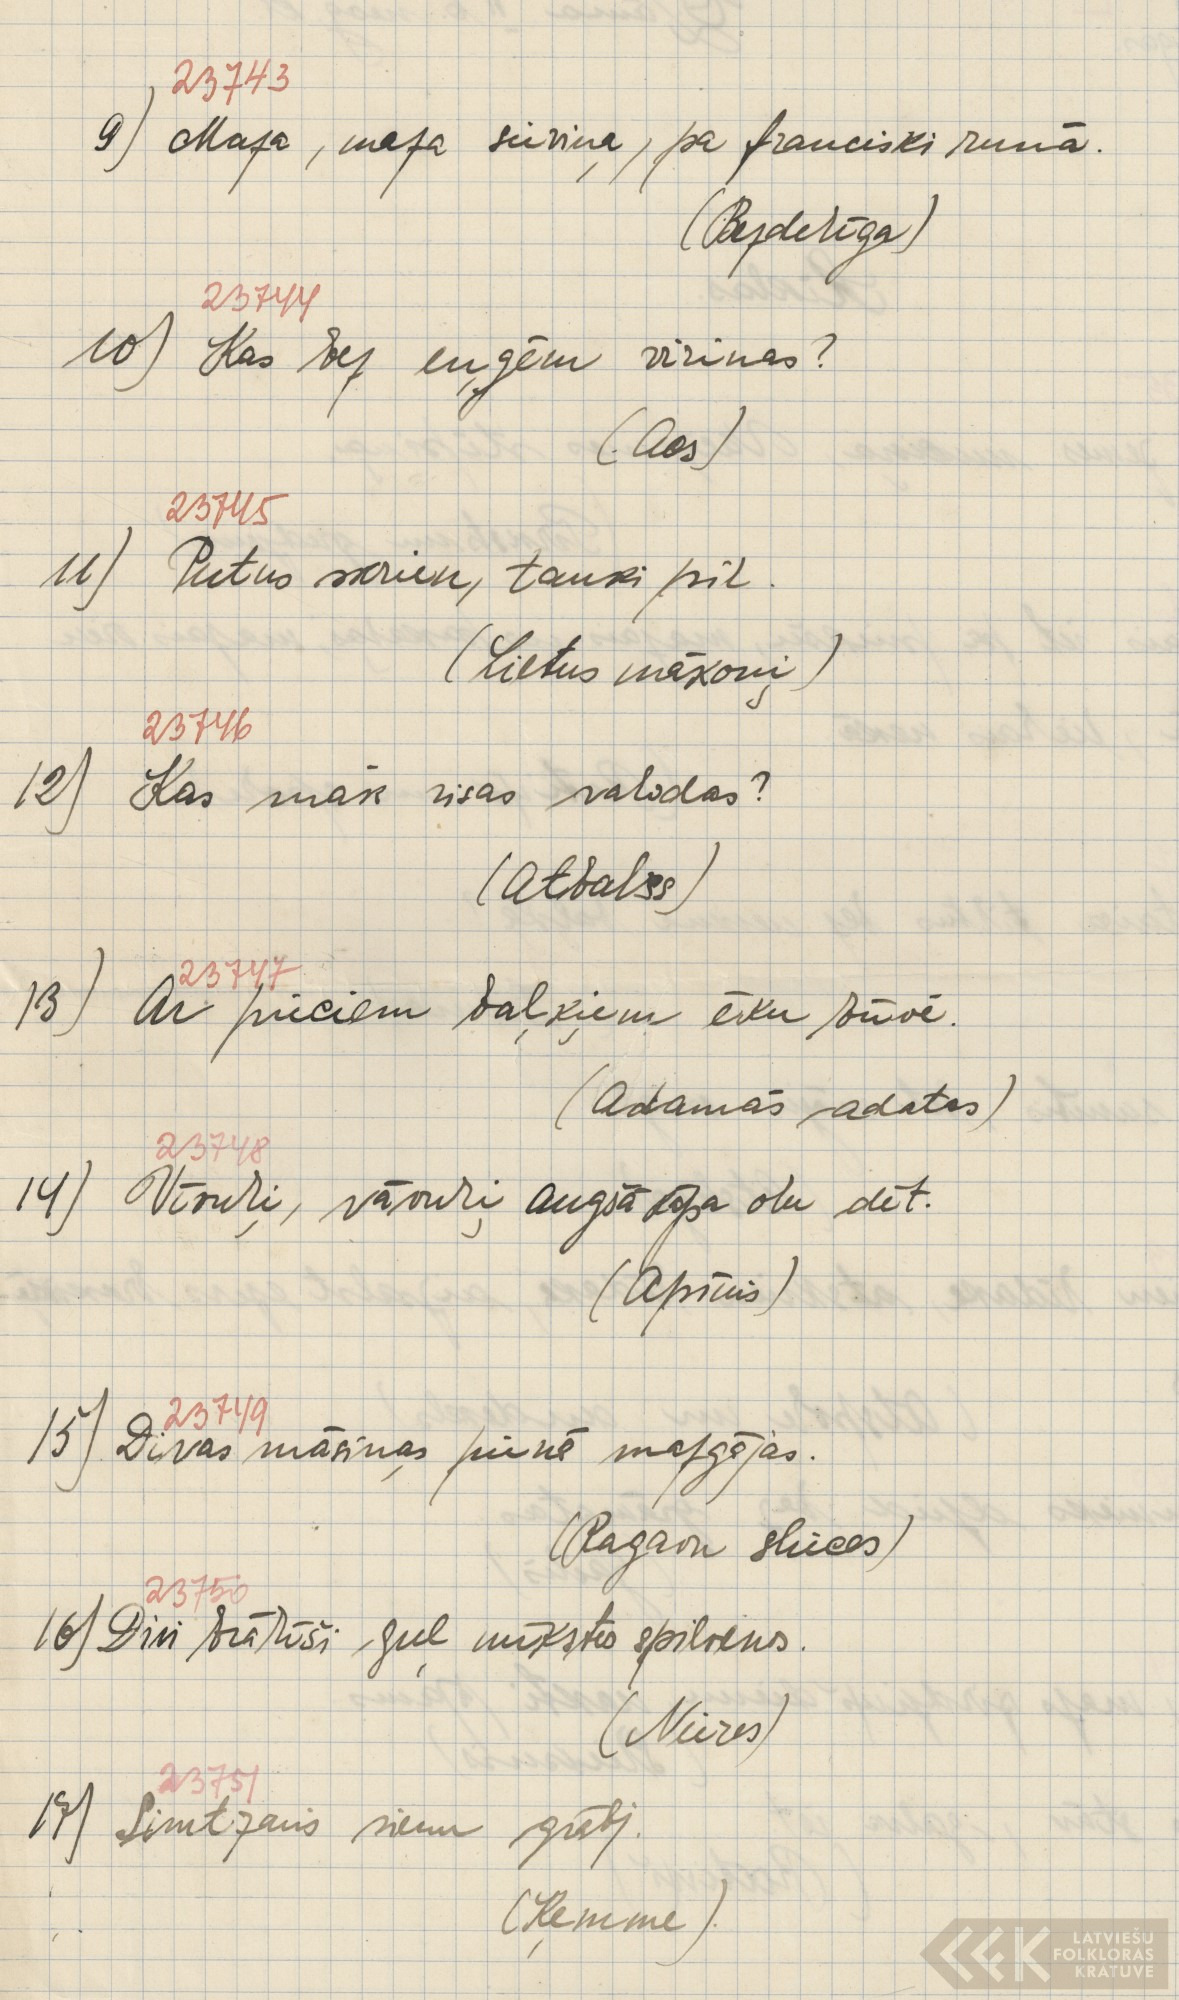 23743
9) Maza, maza sieviņa, pa franciski runā.
(Bezdelīga)
23744
10) Kas bez eņģēm virinas?
(Acs)
23745
11) Putns skrien, tauki pil.
(Lietus mākoņi)
23746
12) Kas māk visas valodas?
(Atbalss)
23747
13) Ar pieciem baļķiem ēku būvē.
(Adamās adatas)
23748
14) Vīruļi, vāruļi augšā kāpa olu dēt.
(Apīnis)
23749
15) Divas māsiņas pienā mazgājas.
(Ragavu slieces)
23750
16) Divi brālīši guļ mīkstos spilvenos.
(Nieres)
23751
17) Simtzaris sienu grābj.
(Ķemme).
LATVIEŠU
FOLKLORAS
KRATUVE